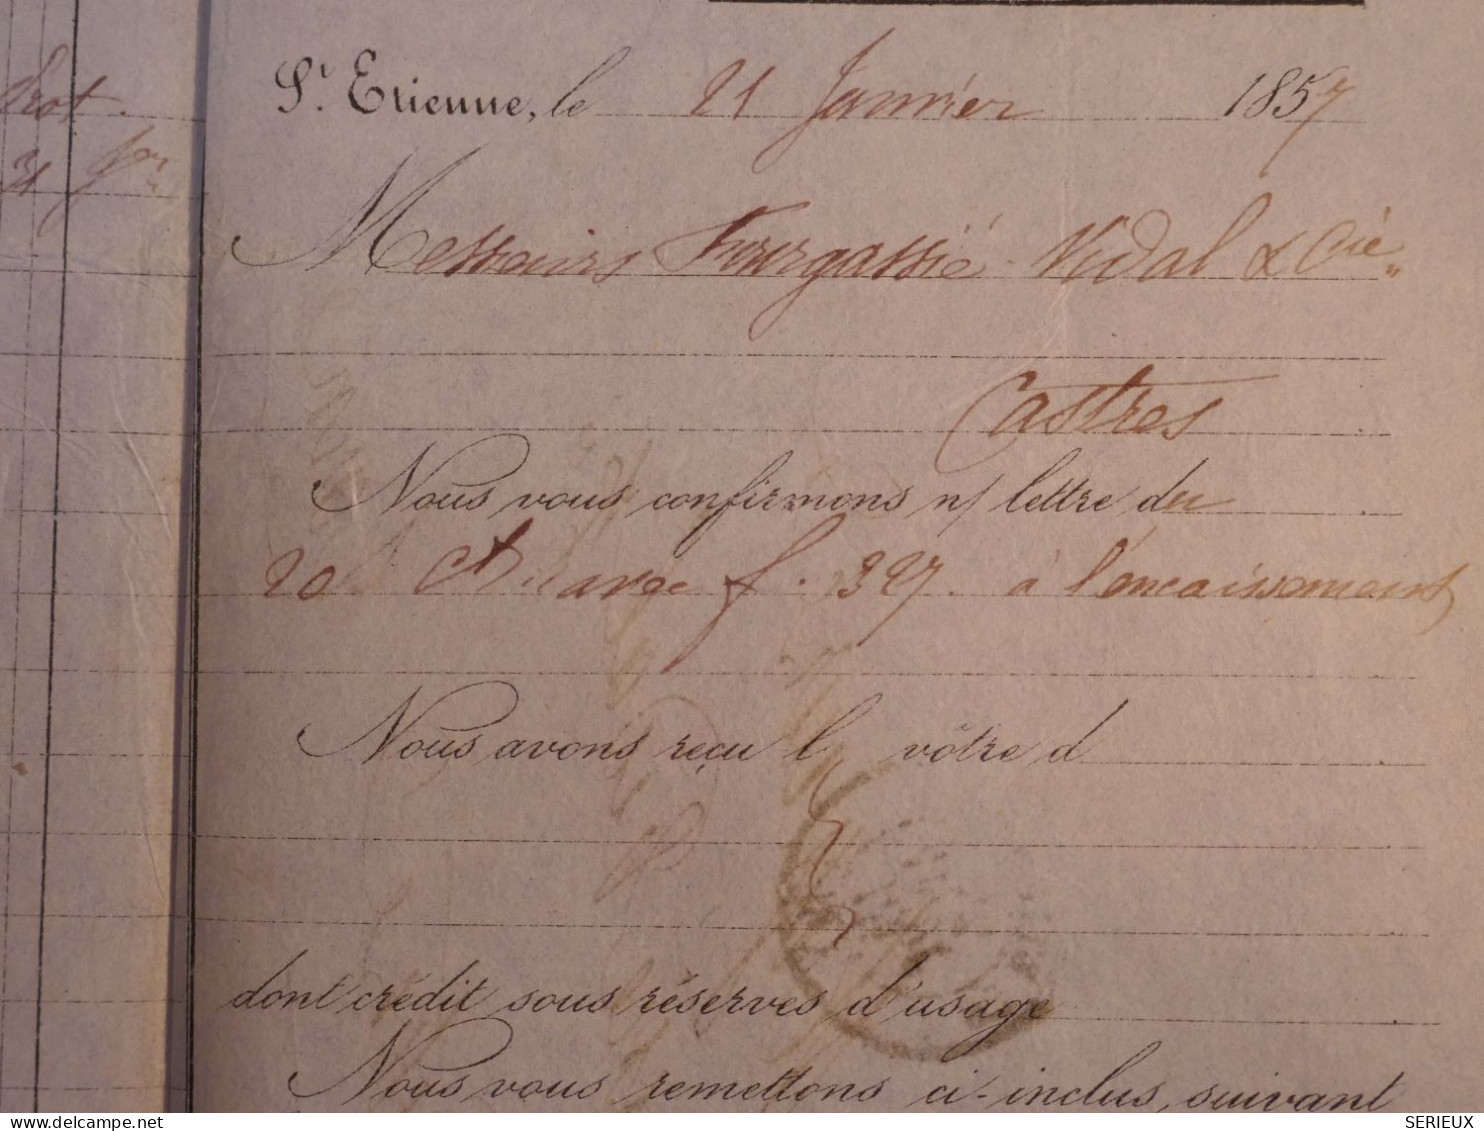 St. Etienne, le 21 Janvier 1857
Messieurs Fourgassié Vidal & Cie
Castres
Nous vous confirmons n/ lettre du
20 avec f. 327. à l'encaissement
Nous avons reçu l vôtre d
dont crédit sous réserves d'usage
Nous vous remettons ci-inclus, suivant
SERIEUX